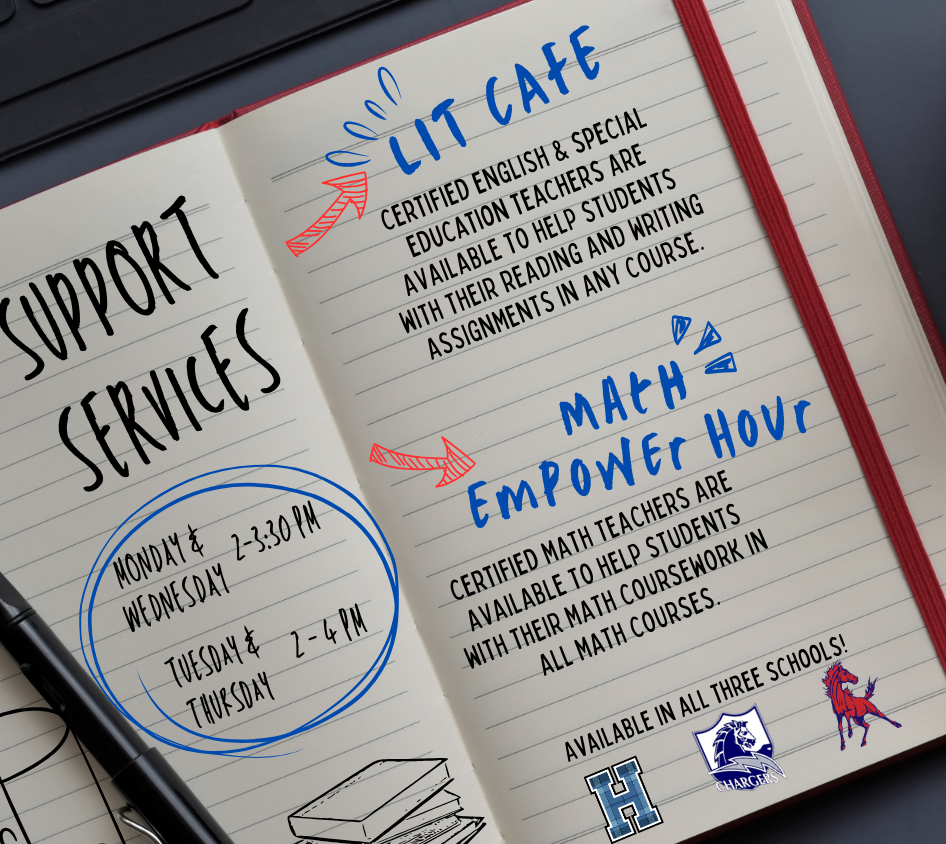 SUPPORT
SERVICES
MONDAY & 2-3:30 PM
WEDNESDAY
TUESDAY & 2-4 PM
THURSDAY
LIT CAFE
CERTIFIED ENGLISH & SPECIAL
EDUCATION TEACHERS ARE
AVAILABLE TO HELP STUDENTS
WITH THEIR READING AND WRITING
ASSIGNMENTS IN ANY COURSE.
MATH
EMPOWER HOUR
CERTIFIED MATH TEACHERS ARE
AVAILABLE TO HELP STUDENTS
WITH THEIR MATH COURSEWORK IN
ALL MATH COURSES.
AVAILABLE IN ALL THREE SCHOOLS!
H
CHARGERS